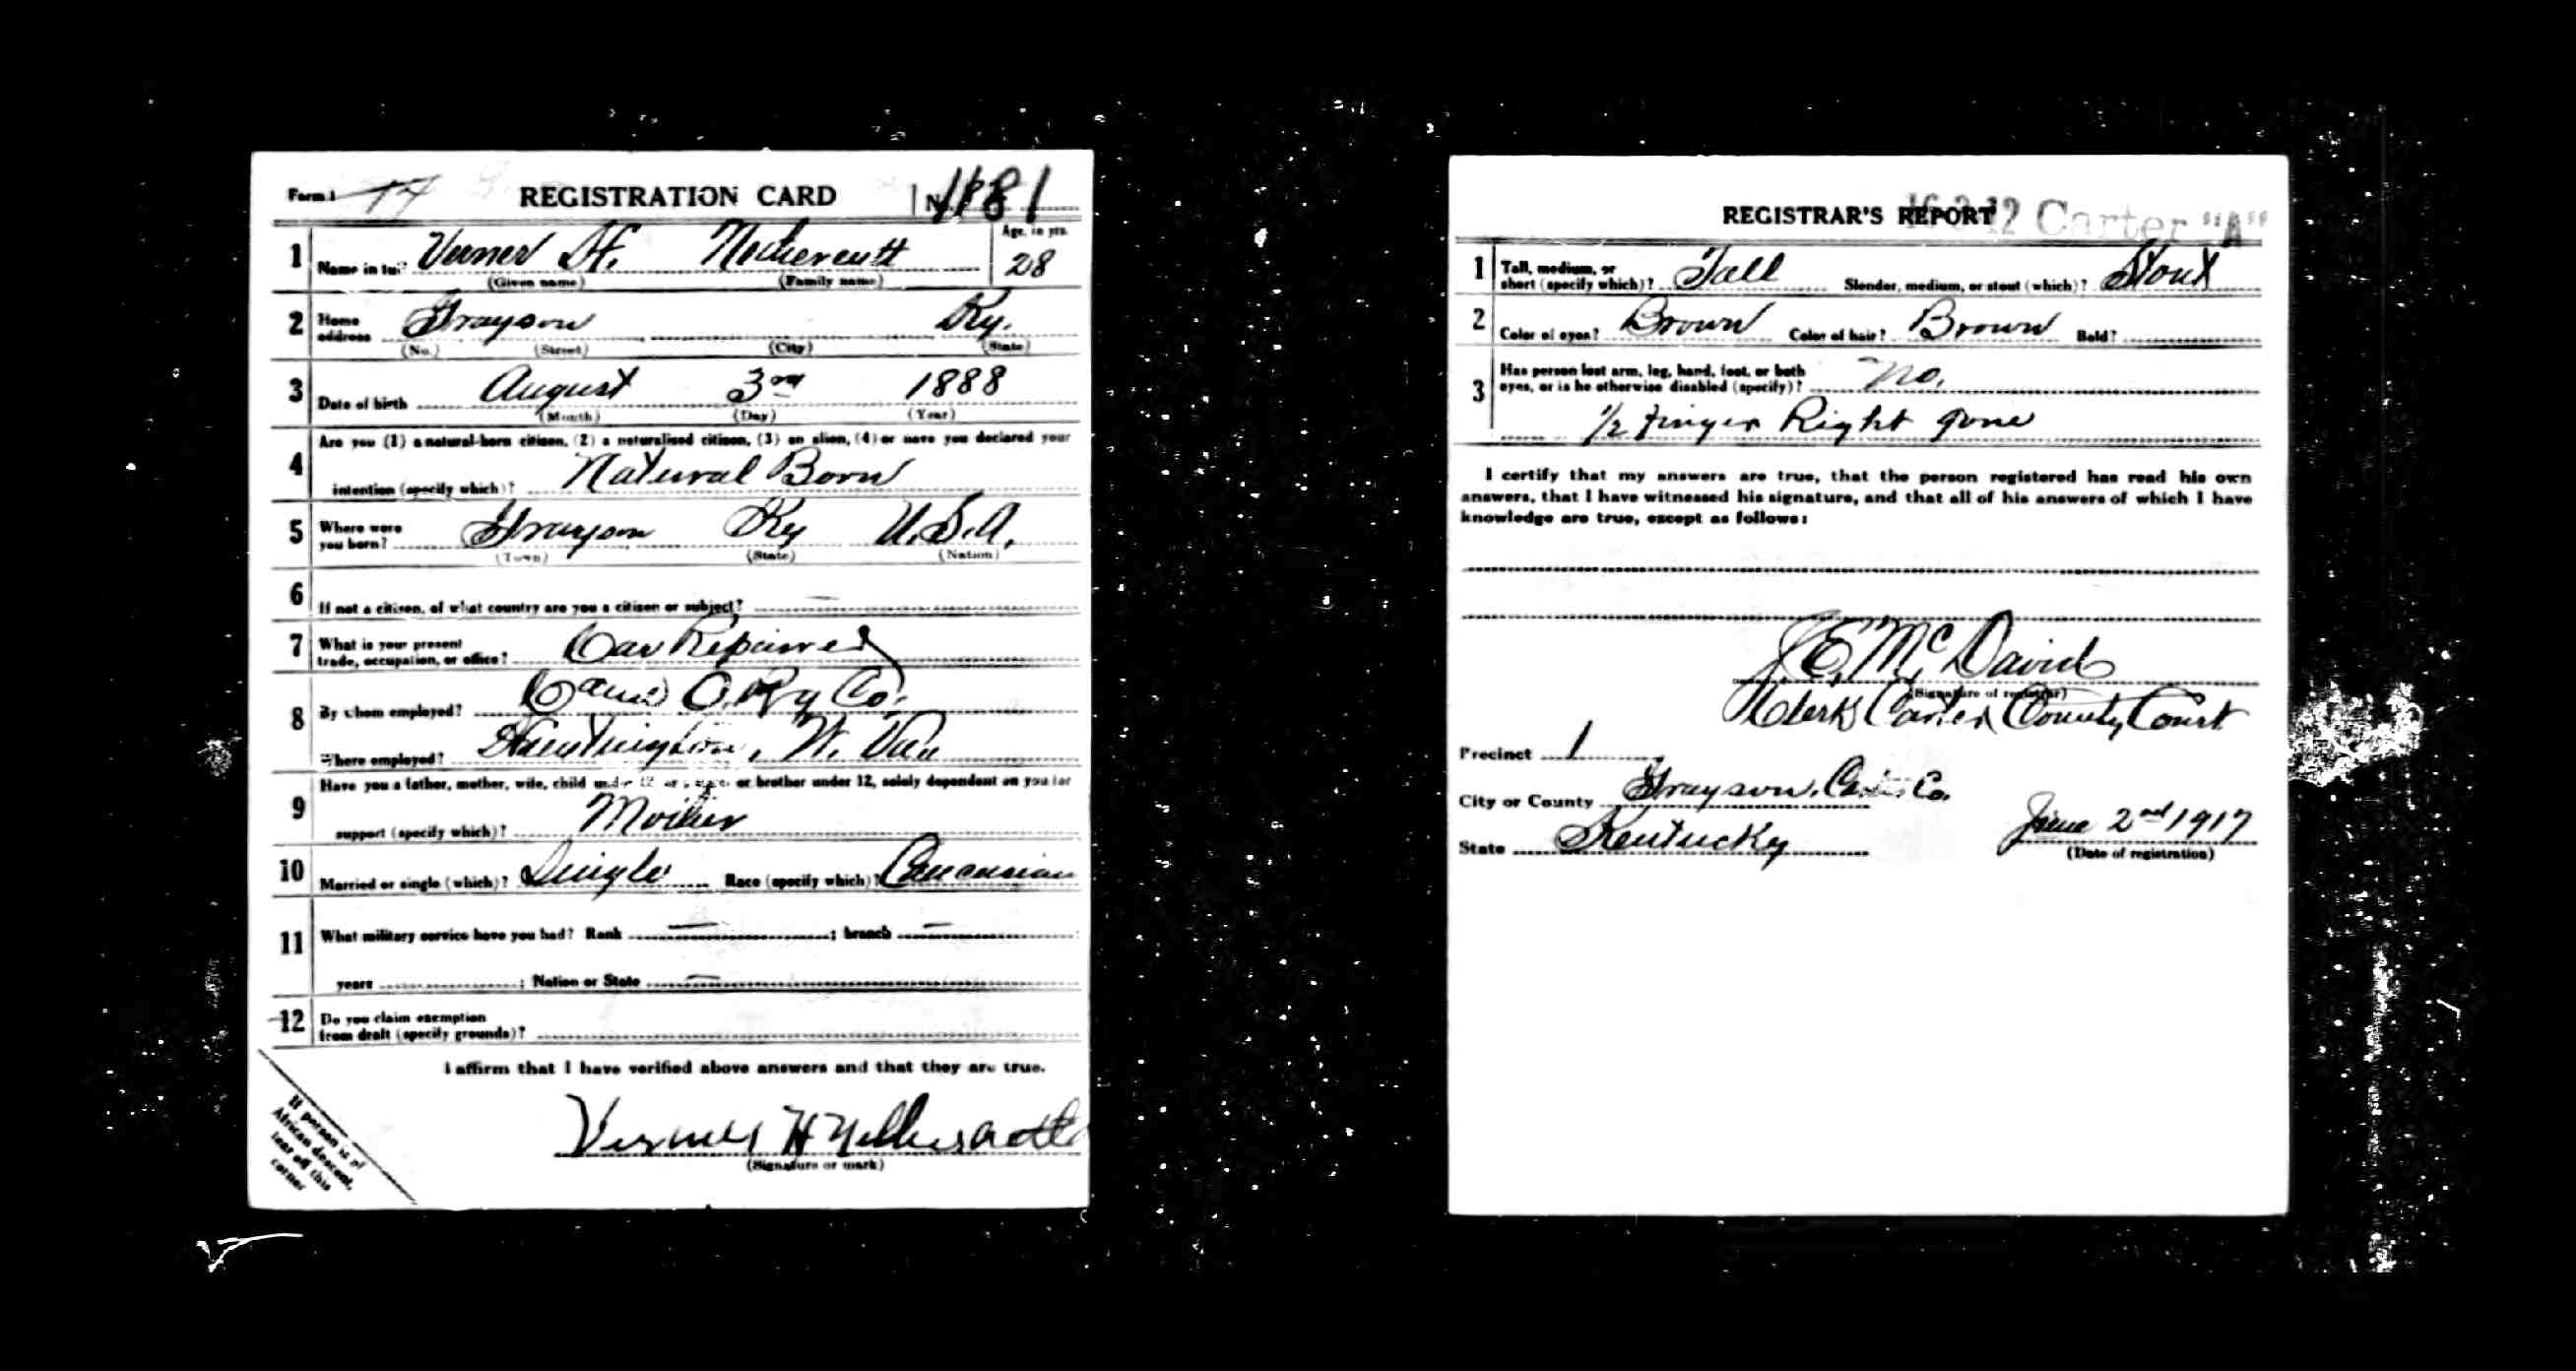 Form 1 REGISTRATION CARD No. 1181
1 Name in full Verner H. Age, in yrs. 28
(Given name) (Family name)
2 Home address Grayson Ky.
(No.) (Street) (City) (State)
3 Date of birth August 3rd 1888
(Month) (Day) (Year)
4 Are you (1) a natural-born citizen, (2) a naturalized citizen, (3) an alien, (4) or have you declared your
intention (specify which)? Natural Born
5 Where were you born? Grayson Ky U.S.A.
(Town) (State) (Nation)
6 If not a citizen, of what country are you a citizen or subject? —
7 What is your present trade, occupation, or office? Car Repairer
8 By whom employed? C and O. Ry Co.
Where employed? Huntington, W. Va
9 Have you a father, mother, wife, child under 12, or a sister or brother under 12, solely dependent on you for
support (specify which)? Mother
10 Married or single (which)? Single Race (specify which)? Caucasian
11 What military service have you had? Rank — ; branch —
years ; Nation or State —
12 Do you claim exemption
from draft (specify grounds)?
I affirm that I have verified above answers and that they are true.
(Signature or mark)
If person is of
African descent,
tear off this
corner
REGISTRAR'S REPORT 16-3-12 Carter "A"
1 Tall, medium, or
short (specify which)? Tall Slender, medium, or stout (which)? Stout
2 Color of eyes? Brown Color of hair? Brown Bald?
3 Has person lost arm, leg, hand, foot, or both
eyes, or is he otherwise disabled (specify)? No.
1/2 Finger Right gone
I certify that my answers are true, that the person registered has read his own
answers, that I have witnessed his signature, and that all of his answers of which I have
knowledge are true, except as follows:
J.E. McDavid
(Signature of registrar)
Clerk Carter County Court
Precinct 1
City or County Grayson, Carter Co.
State Kentucky June 2nd 1917
(Date of registration)